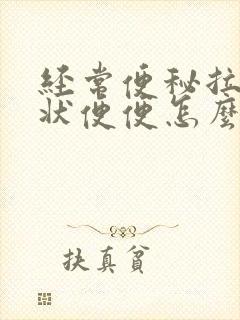 经常便秘拉
状便便怎麼
扶真貧